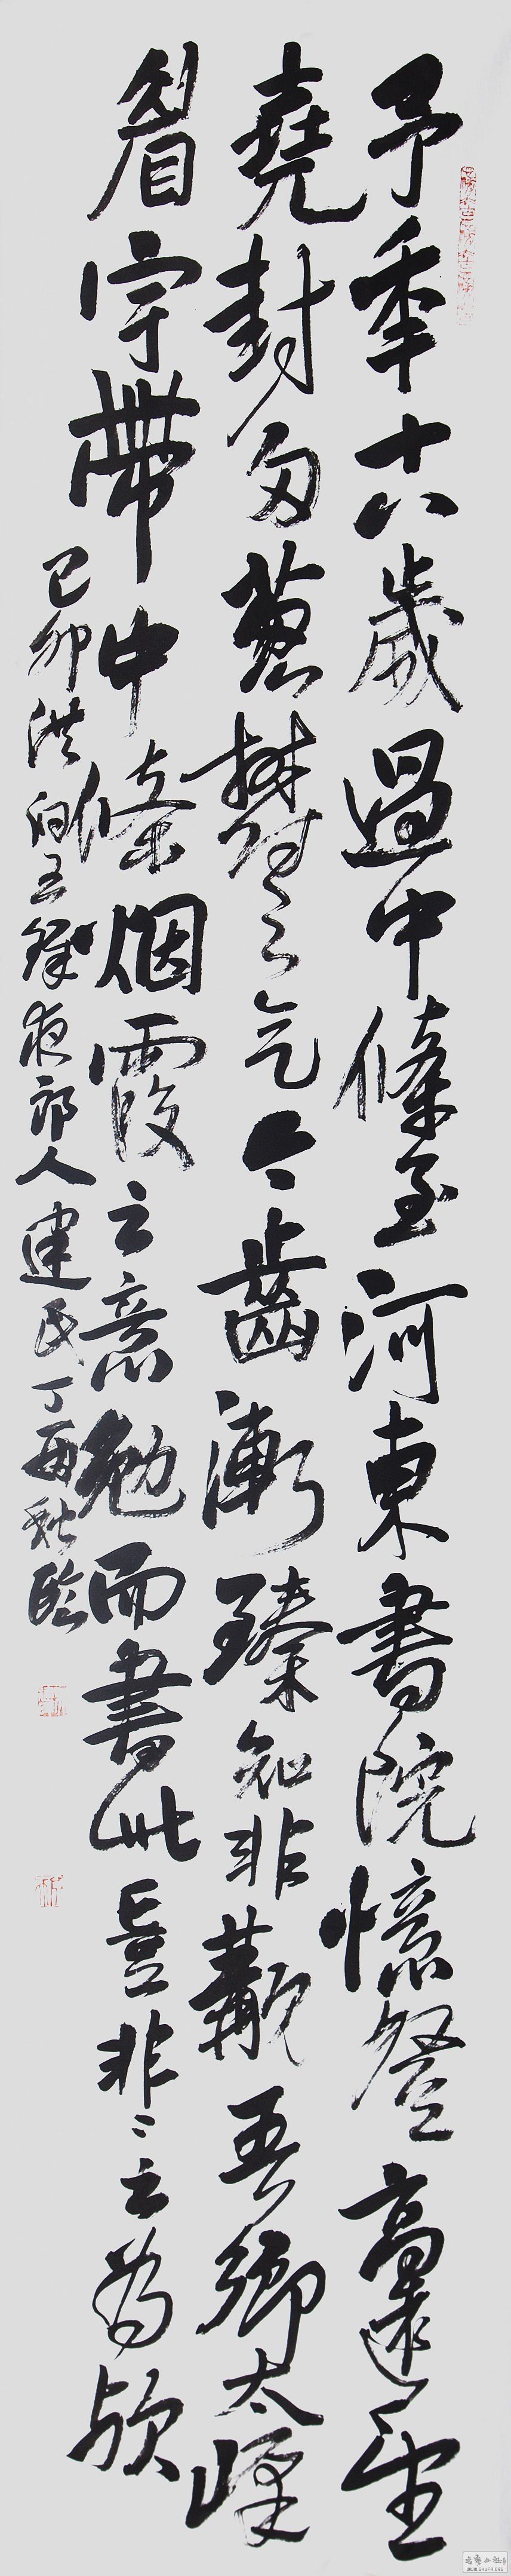 予年十八歲過中條至河東書院憶登高遠望
堯封勾蔥樊之气今齒漸臻知非觀吾鄉太峰
眉宇帶中條烟霞之意勉而書此豈非非之為歟
己卯洪洞王鐸夜郎人建民丁酉秋臨
WWW.SHUFR.ORG